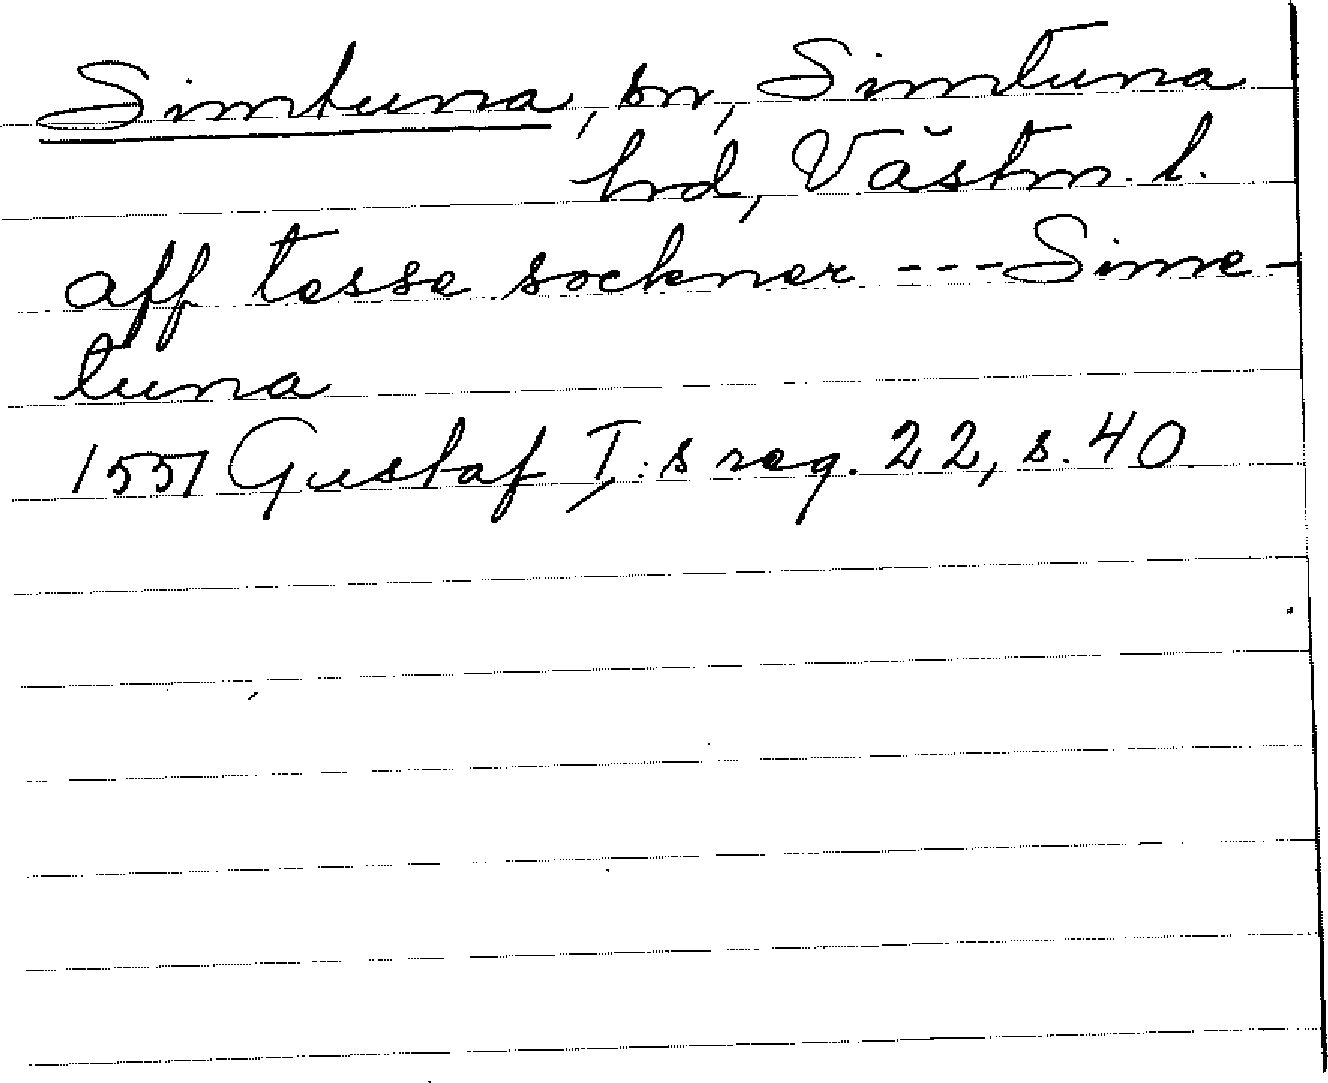 Simtuna, sn, Simtuna
hrd, Västm. l.
aff tesse sockner --- Sime-
tuna
1551 Gustaf I:s reg. 22, s. 40